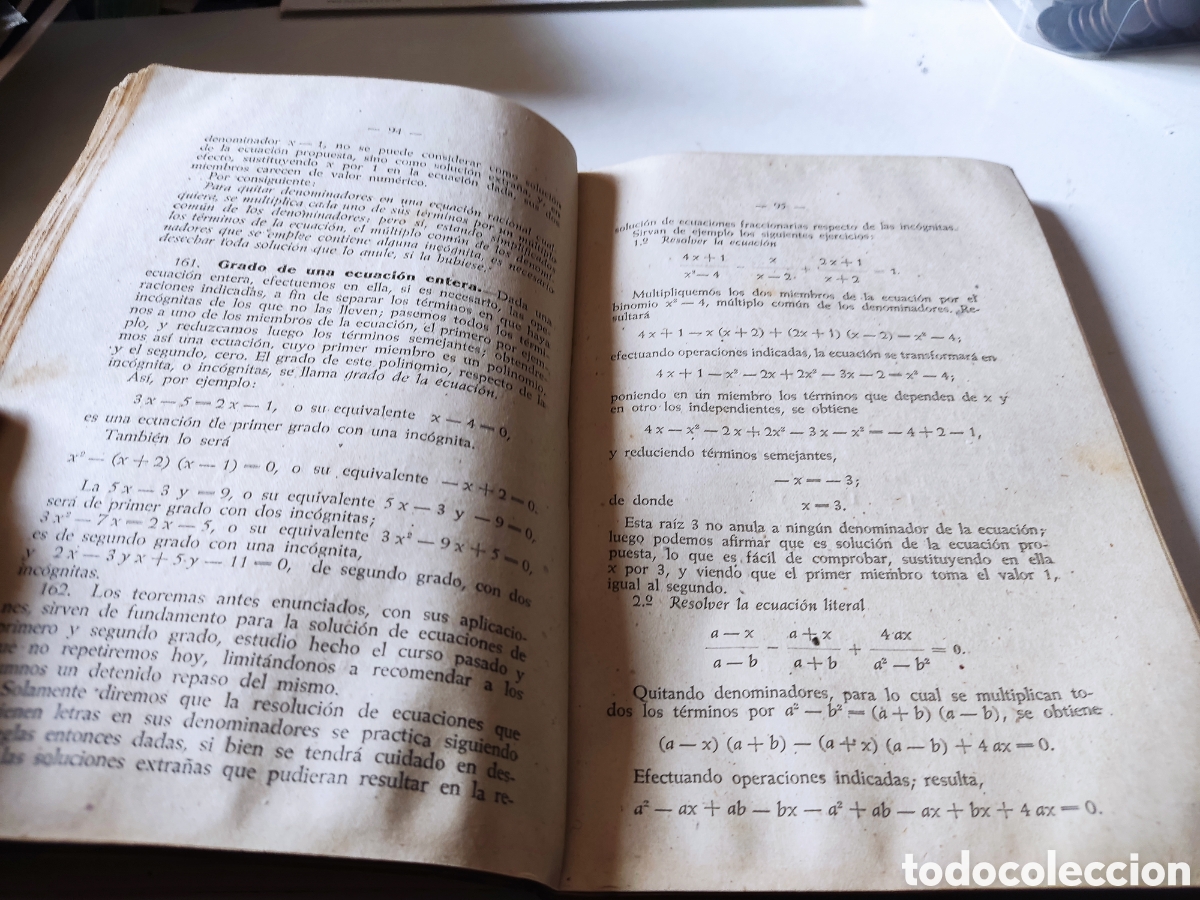 — 94 —
denominador x — 1, no se puede considerar como solución
de la ecuación propuesta, sino como solución extraña, y, en
efecto, sustituyendo x por 1 en la ecuación dada, sus dos
miembros carecen de valor numérico.
Por consiguiente:
Para quitar denominadores en una ecuación racional cual-
quiera, se multiplica cada uno de sus términos por el múltiplo
común de los denominadores; pero si, estando simplificados
los términos de la ecuación, el múltiplo común de los denomi-
nadores que se emplee contiene alguna incógnita, es necesario
desechar toda solución que lo anule, si la hubiese.
161. Grado de una ecuación entera.—Dada una
ecuación entera, efectuemos en ella, si es necesario, las ope-
raciones indicadas, a fin de separar los términos en que haya
incógnitas de los que no las lleven; pasemos todos los térmi-
nos a uno de los miembros de la ecuación, el primero por ejem-
plo, y reduzcamos luego los términos semejantes; obtendre-
mos así una ecuación, cuyo primer miembro es un polinomio,
y el segundo, cero. El grado de este polinomio, respecto de la
incógnita, o incógnitas, se llama grado de la ecuación.
Así, por ejemplo:
3x — 5 = 2x — 1, o su equivalente x — 4 = 0,
es una ecuación de primer grado con una incógnita.
También lo será
x² — (x + 2) (x — 1) = 0, o su equivalente — x + 2 = 0.
La 5x — 3y = 9, o su equivalente 5x — 3y — 9 = 0,
será de primer grado con dos incógnitas;
3x² — 7x = 2x — 5, o su equivalente 3x² — 9x + 5 = 0,
es de segundo grado con una incógnita,
y 2x — 3yx + 5y — 11 = 0, de segundo grado, con dos
incógnitas.
162. Los teoremas antes enunciados, con sus aplicacio-
nes, sirven de fundamento para la solución de ecuaciones de
primero y segundo grado, estudio hecho el curso pasado y
que no repetiremos hoy, limitándonos a recomendar a los
alumnos un detenido repaso del mismo.
Solamente diremos que la resolución de ecuaciones que
tienen letras en sus denominadores se practica siguiendo
reglas entonces dadas, si bien se tendrá cuidado en des-
las soluciones extrañas que pudieran resultar en la re-
— 95 —
solución de ecuaciones fraccionarias respecto de las incógnitas.
Sirvan de ejemplo los siguientes ejercicios:
1.º Resolver la ecuación
4x + 1 x 2x + 1
— + = 1.
x² — 4 x — 2 x + 2
Multipliquemos los dos miembros de la ecuación por el
binomio x² — 4, múltiplo común de los denominadores. Re-
sultará
4x + 1 — x (x + 2) + (2x + 1) (x — 2) = x² — 4;
efectuando operaciones indicadas, la ecuación se transformará en
4x + 1 — x² — 2x + 2x² — 3x — 2 = x² — 4;
poniendo en un miembro los términos que dependen de x y
en otro los independientes, se obtiene
4x — x² — 2x + 2x² — 3x — x² = — 4 + 2 — 1,
y reduciendo términos semejantes,
— x = — 3;
de donde x = 3.
Esta raíz 3 no anula a ningún denominador de la ecuación;
luego podemos afirmar que es solución de la ecuación pro-
puesta, lo que es fácil de comprobar, sustituyendo en ella
x por 3, y viendo que el primer miembro toma el valor 1,
igual al segundo.
2.º Resolver la ecuación literal
a — x a + x 4 ax
— + = 0.
a — b a + b a² — b²
Quitando denominadores, para lo cual se multiplican to-
dos los términos por a² — b² = (a + b) (a — b), se obtiene
(a — x) (a + b) — (a + x) (a — b) + 4 ax = 0.
Efectuando operaciones indicadas; resulta,
a² — ax + ab — bx — a² + ab — ax + bx + 4 ax = 0.
todocoleccion